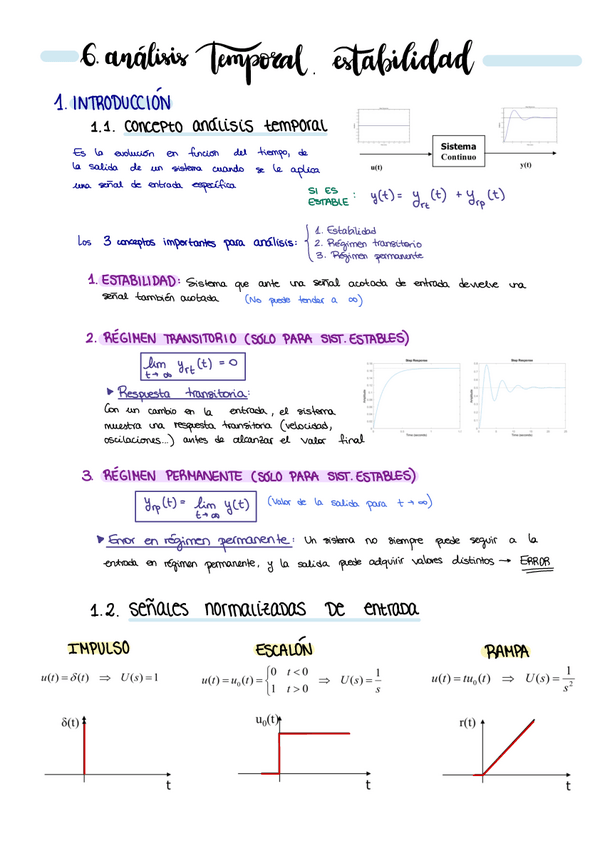 6. análisis Temporal. estabilidad
1. INTRODUCCIÓN
1.1. concepto análisis temporal
Es la evolución en función del tiempo, de
la salida de un sistema cuando se le aplica
una señal de entrada específica
u(t)
Sistema
Continuo
y(t)
SI ES
ESTABLE : y(t) = y_rt (t) + y_rp (t)
Los 3 conceptos importantes para análisis:
1. Estabilidad
2. Régimen transitorio
3. Régimen permanente
1. ESTABILIDAD: Sistema que ante una señal acotada de entrada devuelve una
señal también acotada (No puede tender a ∞)
2. RÉGIMEN TRANSITORIO (SÓLO PARA SIST. ESTABLES)
lim y_rt (t) = 0
t→∞
Respuesta transitoria:
Con un cambio en la entrada, el sistema
muestra una respuesta transitoria (velocidad,
oscilaciones...) antes de alcanzar el valor final
Step Response
Amplitude
Time (seconds)
Step Response
Amplitude
Time (seconds)
3. RÉGIMEN PERMANENTE (SÓLO PARA SIST. ESTABLES)
y_rp (t) = lim y(t) (Valor de la salida para t→∞)
t→∞
Error en régimen permanente: Un sistema no siempre puede seguir a la
entrada en régimen permanente, y la salida puede adquirir valores distintos → ERROR
1.2. señales normalizadas DE entrada
IMPULSO
u(t) = δ(t) ⇒ U(s) = 1
δ(t)
t
ESCALÓN
u(t) = u₀(t) = {0 t < 0
1 t > 0 ⇒ U(s) = 1/s
u₀(t)
t
RAMPA
u(t) = tu₀(t) ⇒ U(s) = 1/s²
r(t)
t